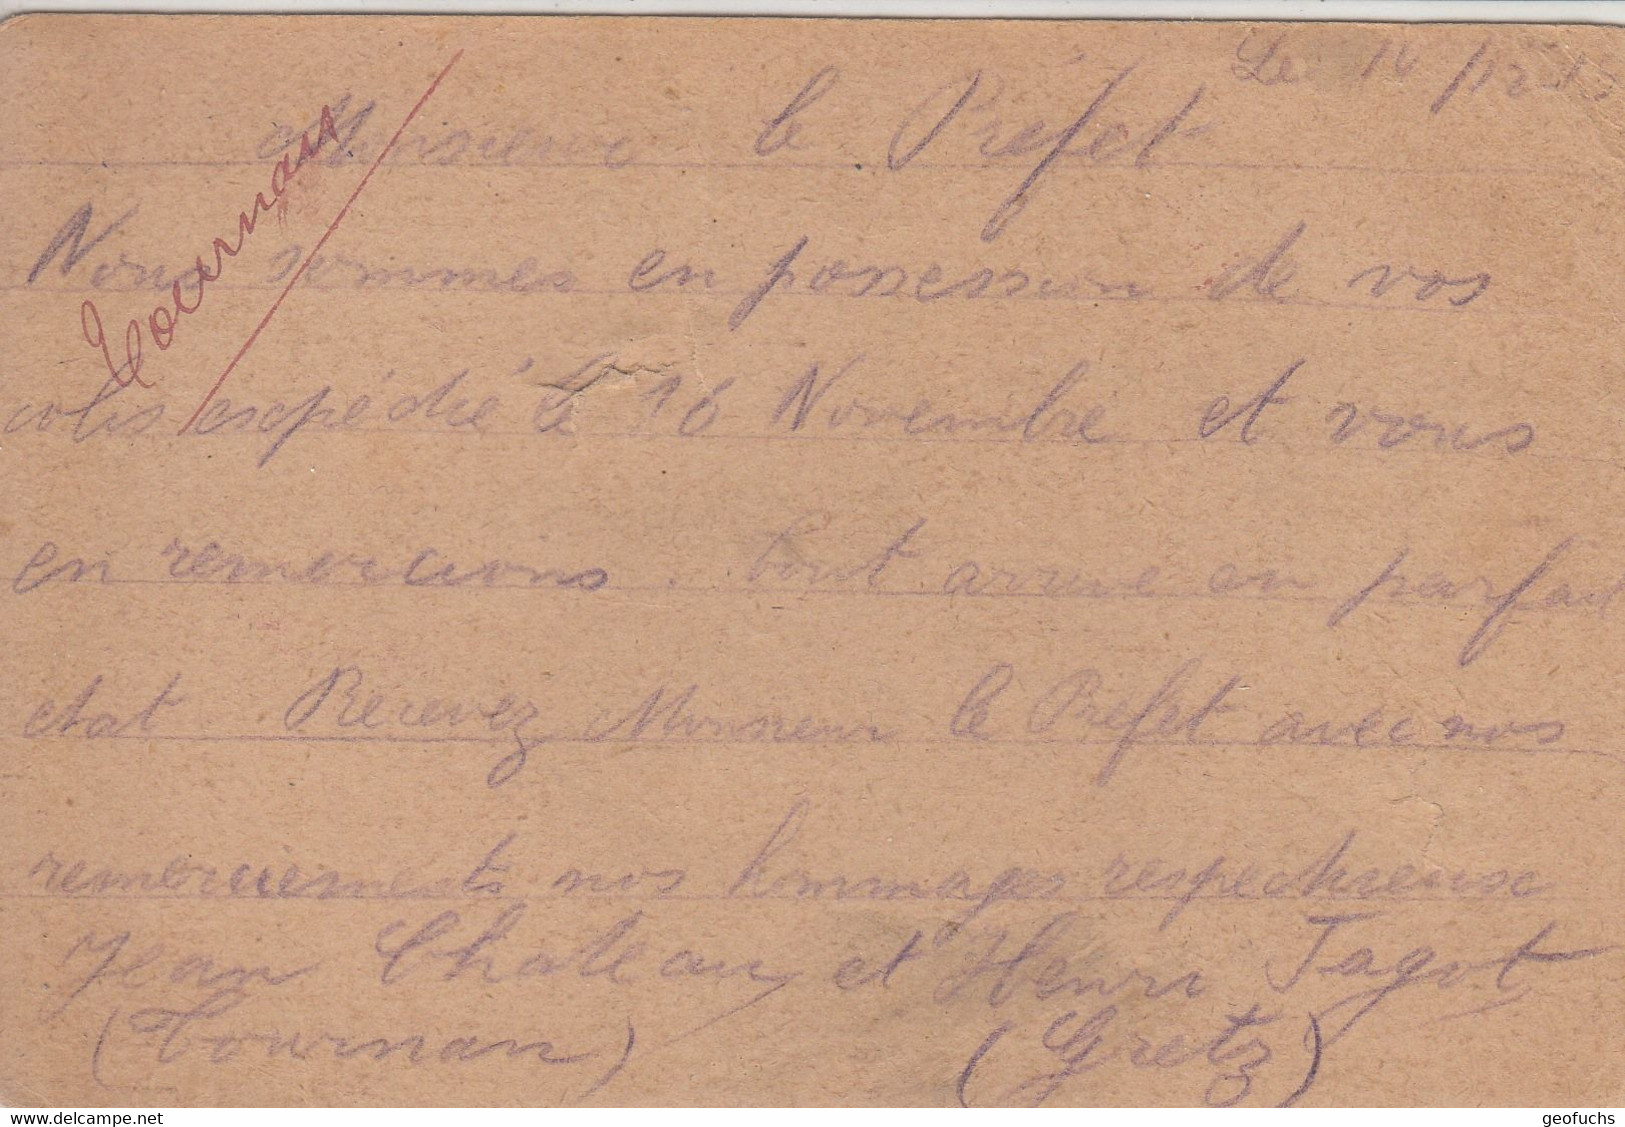 Le 14/12 15
Monsieur le Préfet
Tournan
Nous sommes en possession de vos
colis expédié le 16 Novembre et vous
en remercions. Tout arrive en parfait
etat Recevez Monsieur le Prefet avec nos
remerciements nos hommages respectueuse
Jean Chateau et Henri Tagot
(Tournan) (Gretz)
delcampe.net
geofuchs